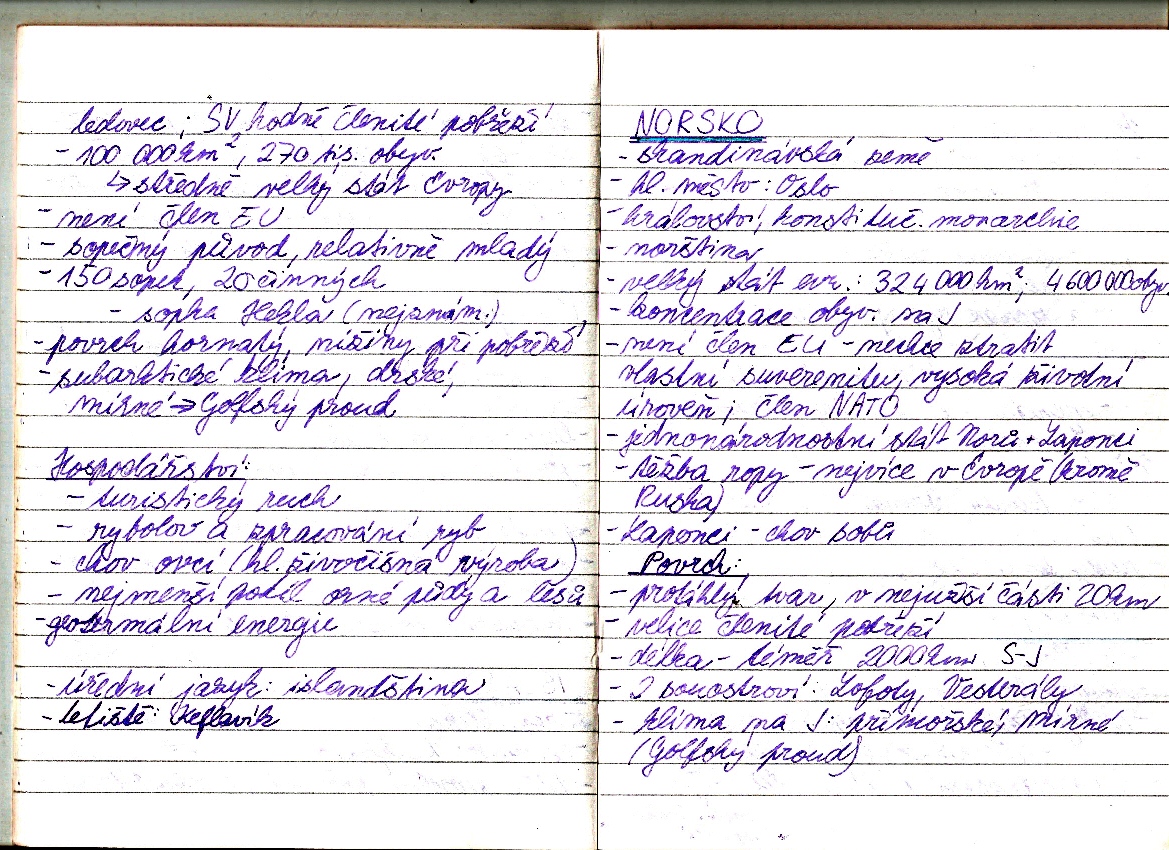 ledovec; SV, hodně členité pobřeží
- 100 000 km², 270 tis. obyv.
↳ středně velký stát Evropy
- není člen EU
- sopečný původ, relativně mladý
- 150 sopek, 20 činných
- sopka Hekla (nejznám.)
- povrch hornatý, nížiny při pobřeží
- subarktické klima, drsné,
mírné → Golfský proud
Hospodářství:
- turistický ruch
- rybolov a zpracování ryb
- chov ovcí (hl. živočišná výroba)
- nejmenší podíl orné půdy a lesů
- geotermální energie
- úřední jazyk: islandština
- letiště: Keflavík
NORSKO
- skandinávská země
- hl. město: Oslo
- království, konstituč. monarchie
- norština
- velký stát evr.: 324 000 km², 4 600 000 obyv.
- koncentrace obyv. na J
- není člen EU - nechce ztratit
vlastní suverenitu, vysoká životní
úroveň; člen NATO
- jednonárodnostní stát Norů + Laponci
- těžba ropy - nejvíce v Evropě (kromě
Ruska)
- Laponci - chov sobů
Povrch:
- protáhlý tvar, v nejužší části 20 km
- velice členité pobřeží
- délka - téměř 2000 km S-J
- 2 souostroví: Lofoty, Vesterály
- klima na J: přímořské, mírné
(Golfský proud)